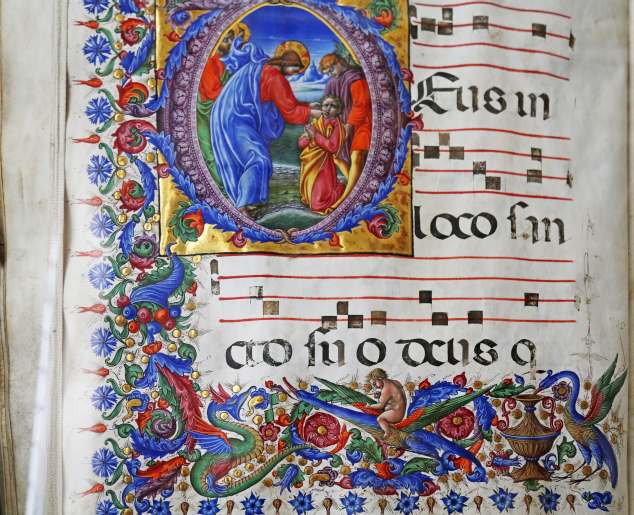 Eus in
loco ſan
cto ſu o deus q